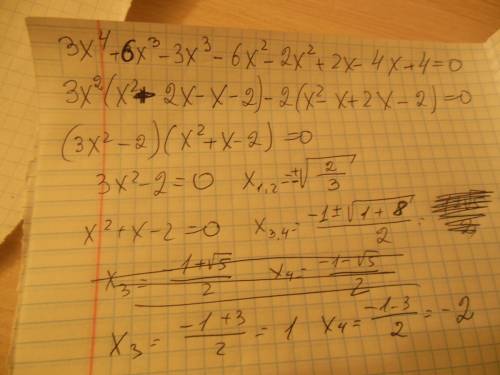 3x⁴+6x³-3x³-6x²-2x²+2x-4x+4=0
3x²(x²+2x-x-2)-2(x²-x+2x-2)=0
(3x²-2)(x²+x-2)=0
3x²-2=0 x₁,₂=±√(2/3)
x²+x-2=0 x₃,₄=(-1±√(1+8))/2=
x₃=(1+√5)/2 x₄=(-1-√5)/2
x₃=(-1+3)/2=1 x₄=(-1-3)/2=-2